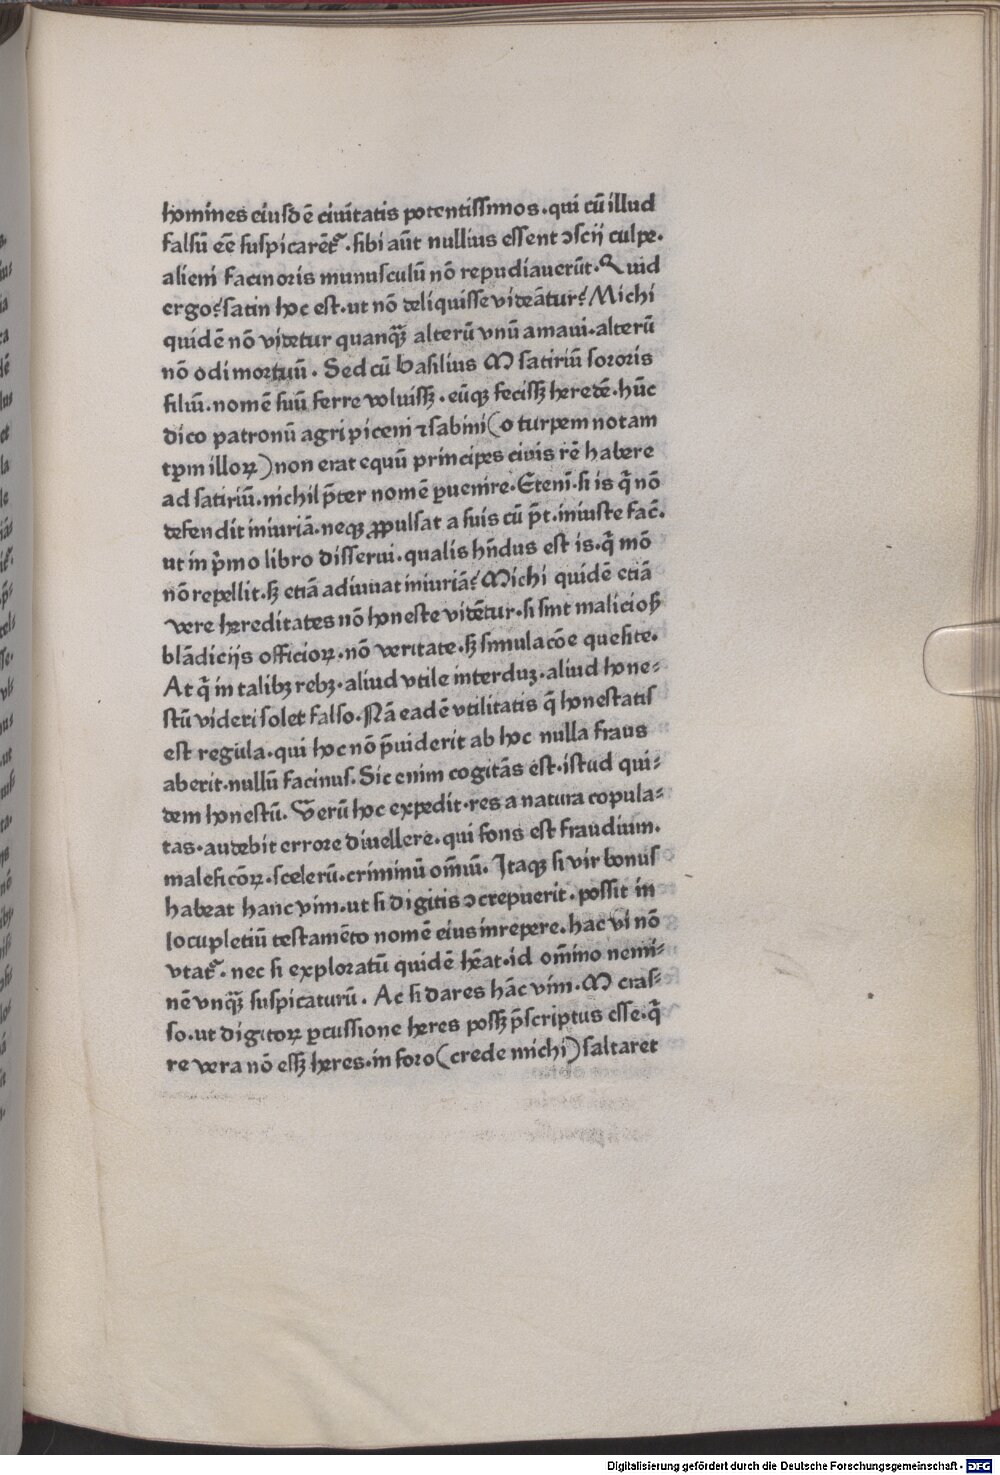 homines eiusdē ciuitatis potentissimos. qui cū illud
falsū eē suspicarēt᷑. sibi aūt nullius essent ↄscij culpe.
alieni facinoris munusculū nō repudiauerūt. Quid
ergo? satin hoc est. ut nō deliquisse videātur? Michi
quidē nō videtur quanqꝫ̄ alterū vnū amaui. alterū
nō odi mortuū. Sed cū basilius M satiriū sororis
filiū. nomē suū ferre voluissꝫ. eūqꝫ fecissꝫ heredē. hūc
dico patronū agri piceni ⁊ sabini (o turpem notam
tꝑm illoꝝ) non erat equū principes ciuis rē habere
ad satiriū. nichil p̄ter nomē ꝑuenire. Eteni. si is q̄ nō
defendit iniuriā. neqꝫ ꝓpulsat a suis cū p̄t. iniuste fac̄.
ut in p̄mo libro disserui. qualis hn̄dus est is. q̄ mō
nō repellit. sꝫ etiā adiuuat iniuriā? Michi quidē etiā
vere hereditates nō honeste vidētur. si sint malicioß
blādicijs officioꝝ. nō veritate. sꝫ simulacōe quesite.
At q̄ in talibꝫ rebꝫ. aliud vtile interduꝫ. aliud hone⸗
stū videri solet falso. Nā eadē vtilitatis q̄ honestatis
est regula. qui hoc nō p̄uiderit ab hoc nulla fraus
aberit. nullū facinus. Sic enim cogitās est. istud qui⸗
dem honestū. Verū hoc expedit. res a natura copula⸗
tas. audebit errore diuellere. qui fons est fraudium.
maleficōꝝ. scelerū. criminū om̄iū. Itaqꝫ si vir bonus
habeat hanc vim. ut si digitis ↄcrepuerit. possit in
locupletiū testamēto nomē eius inrepere. hac vi nō
vtat᷑. nec si exploratū quidē hēat. id om̄ino nemi⸗
nē vnqꝫ̄ suspicaturū. Ac si dares hāc vim. M cras⸗
so. ut digitoꝝ ꝑcussione heres possꝫ p̄scriptus esse. q̄
re vera nō essꝫ heres. in foro (crede michi) saltaret
Digitalisierung gefördert durch die Deutsche Forschungsgemeinschaft - DFG